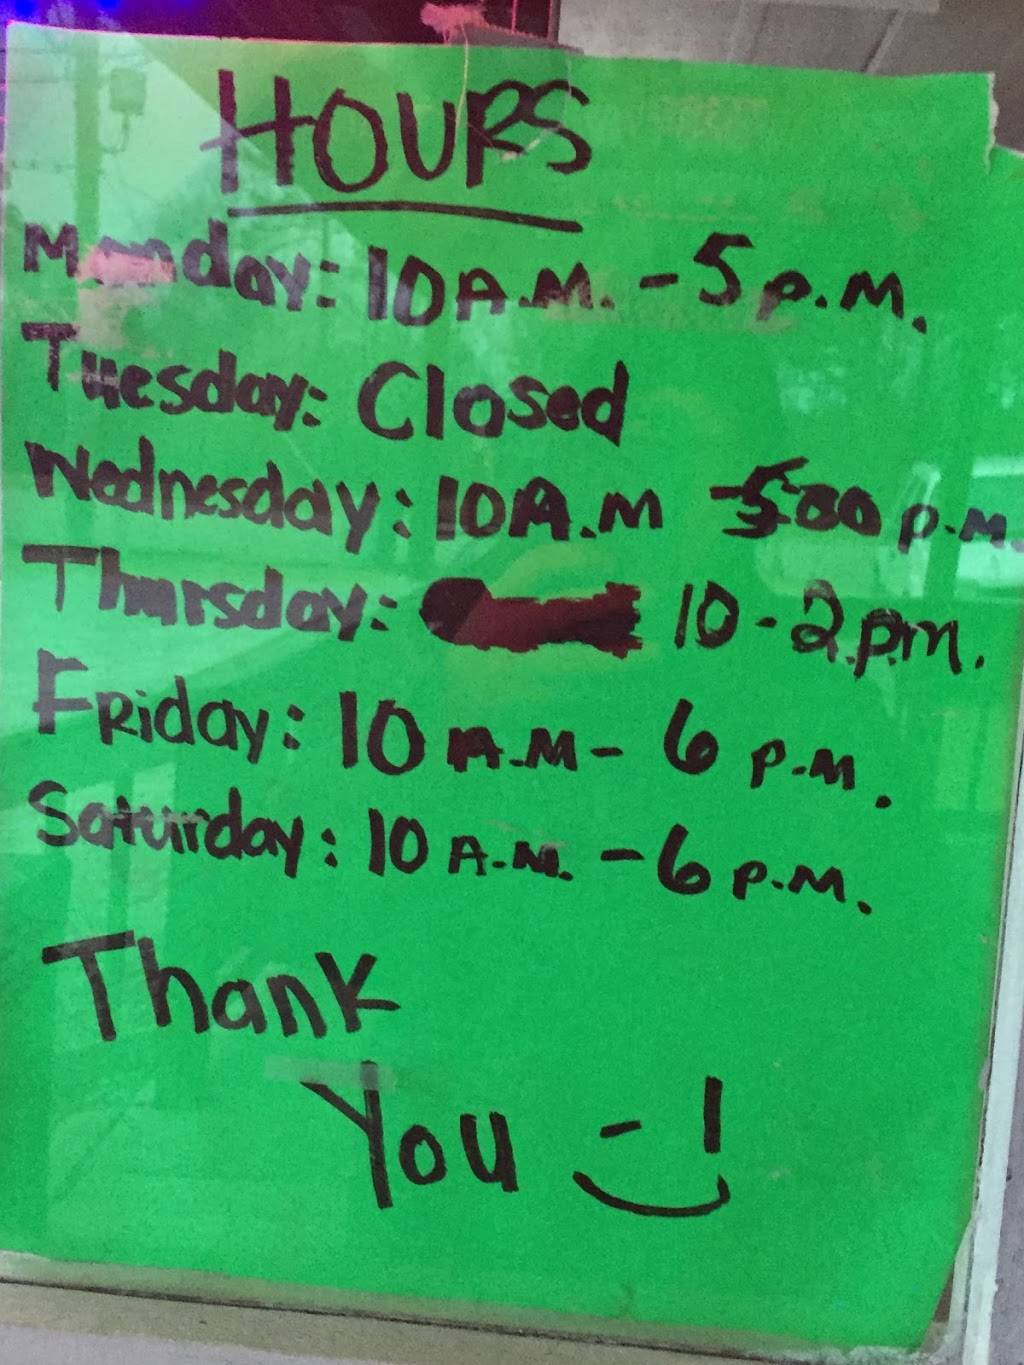 HOURS
Monday: 10 A.M. - 5 p.M.
Tuesday: Closed
Wednesday: 10 A.M - 5:00 p.M.
Thursday: 10 - 2 p.m.
Friday: 10 A.M - 6 p.M.
Saturday: 10 A.M. - 6 p.M.
Thank
You